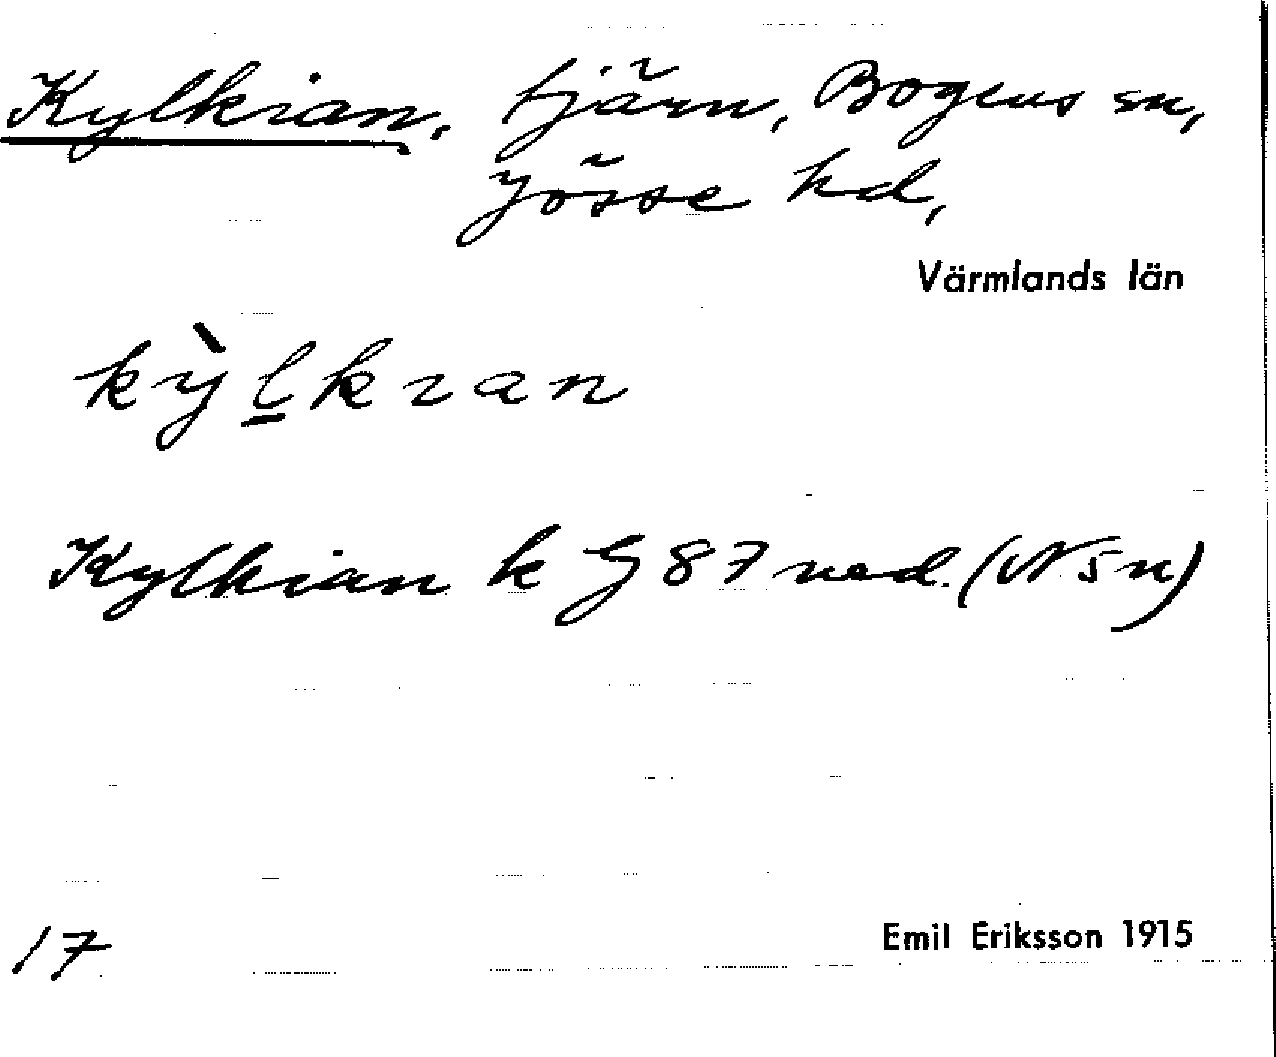 Kylkian, tjärn, Bogens sn,
Jösse hd,
Värmlands län
kỳlkıan
Kylkian k G 87 ned. (N 5 n)
17
Emil Eriksson 1915